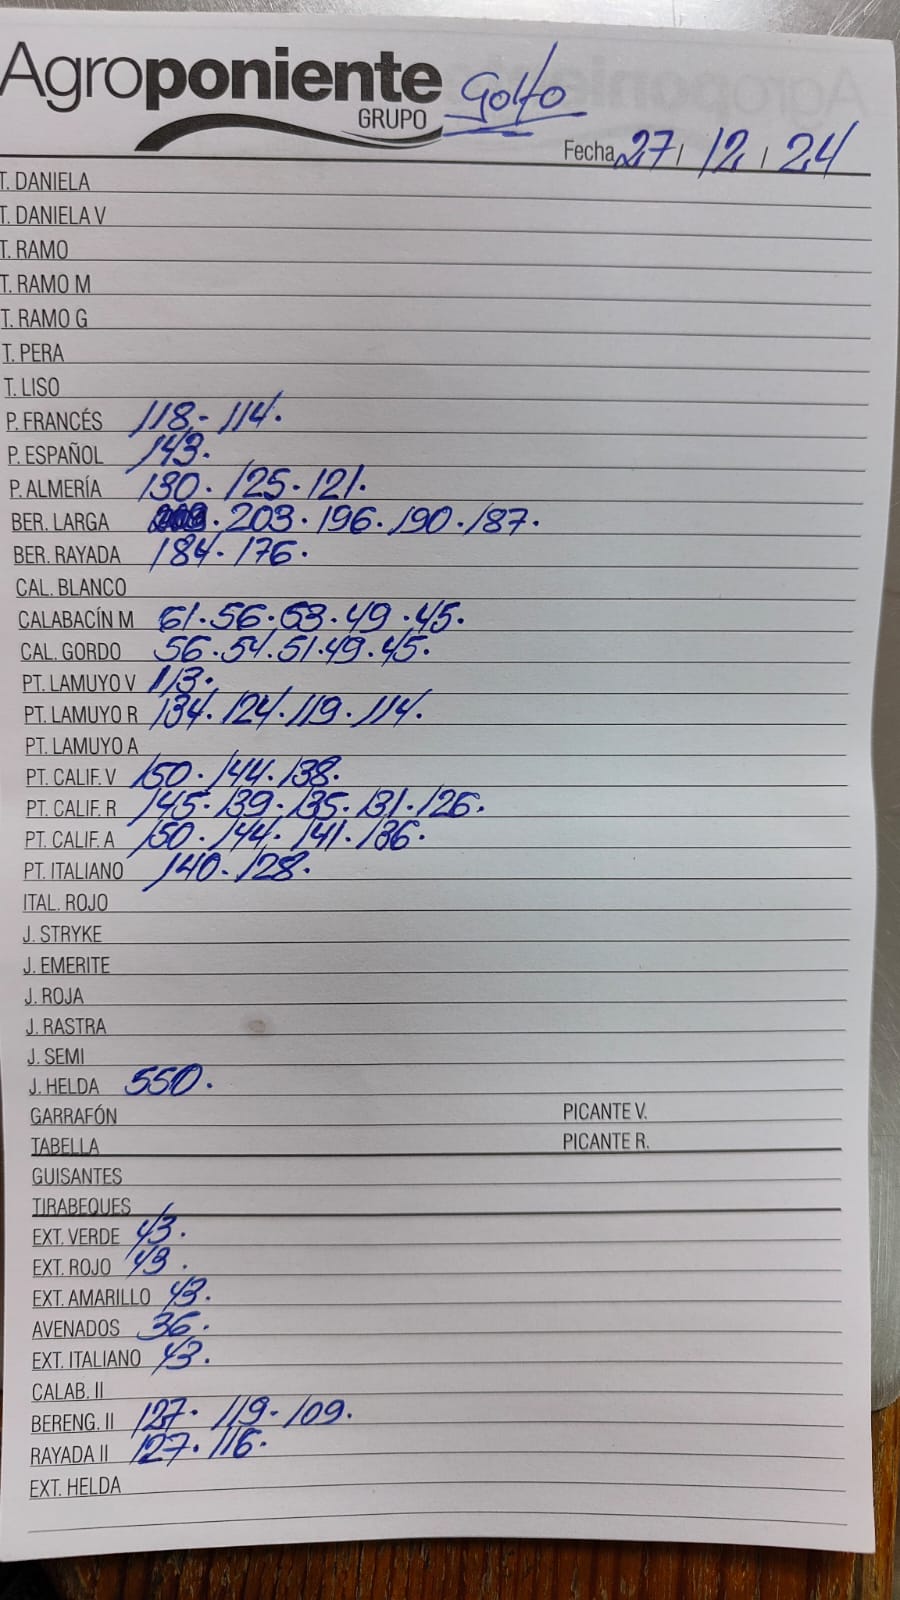 Agroponiente Golfo
GRUPO
Fecha 27 / 12 / 24
T. DANIELA
T. DANIELA V
T. RAMO
T. RAMO M
T. RAMO G
T. PERA
T. LISO
P. FRANCÉS 118. - 114.
P. ESPAÑOL 143.
P. ALMERÍA 130. 125. 121.
BER. LARGA . 203. 196. 190. 187.
BER. RAYADA 184. 176.
CAL. BLANCO
CALABACÍN M 61. 56. 53. 49. 45.
CAL. GORDO 56. 54. 51. 49. 45.
PT. LAMUYO V 113.
PT. LAMUYO R 134. 124. 119. 114.
PT. LAMUYO A
PT. CALIF. V 150. 144. 138.
PT. CALIF. R 145. 139. 135. 131. 126.
PT. CALIF. A 150. 144. 141. 136.
PT. ITALIANO 140. 128.
ITAL. ROJO
J. STRYKE
J. EMERITE
J. ROJA
J. RASTRA
J. SEMI
J. HELDA 550.
GARRAFÓN PICANTE V.
TABELLA PICANTE R.
GUISANTES
TIRABEQUES
EXT. VERDE 43.
EXT. ROJO 43.
EXT. AMARILLO 43.
AVENADOS 36.
EXT. ITALIANO 43.
CALAB. II
BERENG. II 127. 119. 109.
RAYADA II 127. 116.
EXT. HELDA